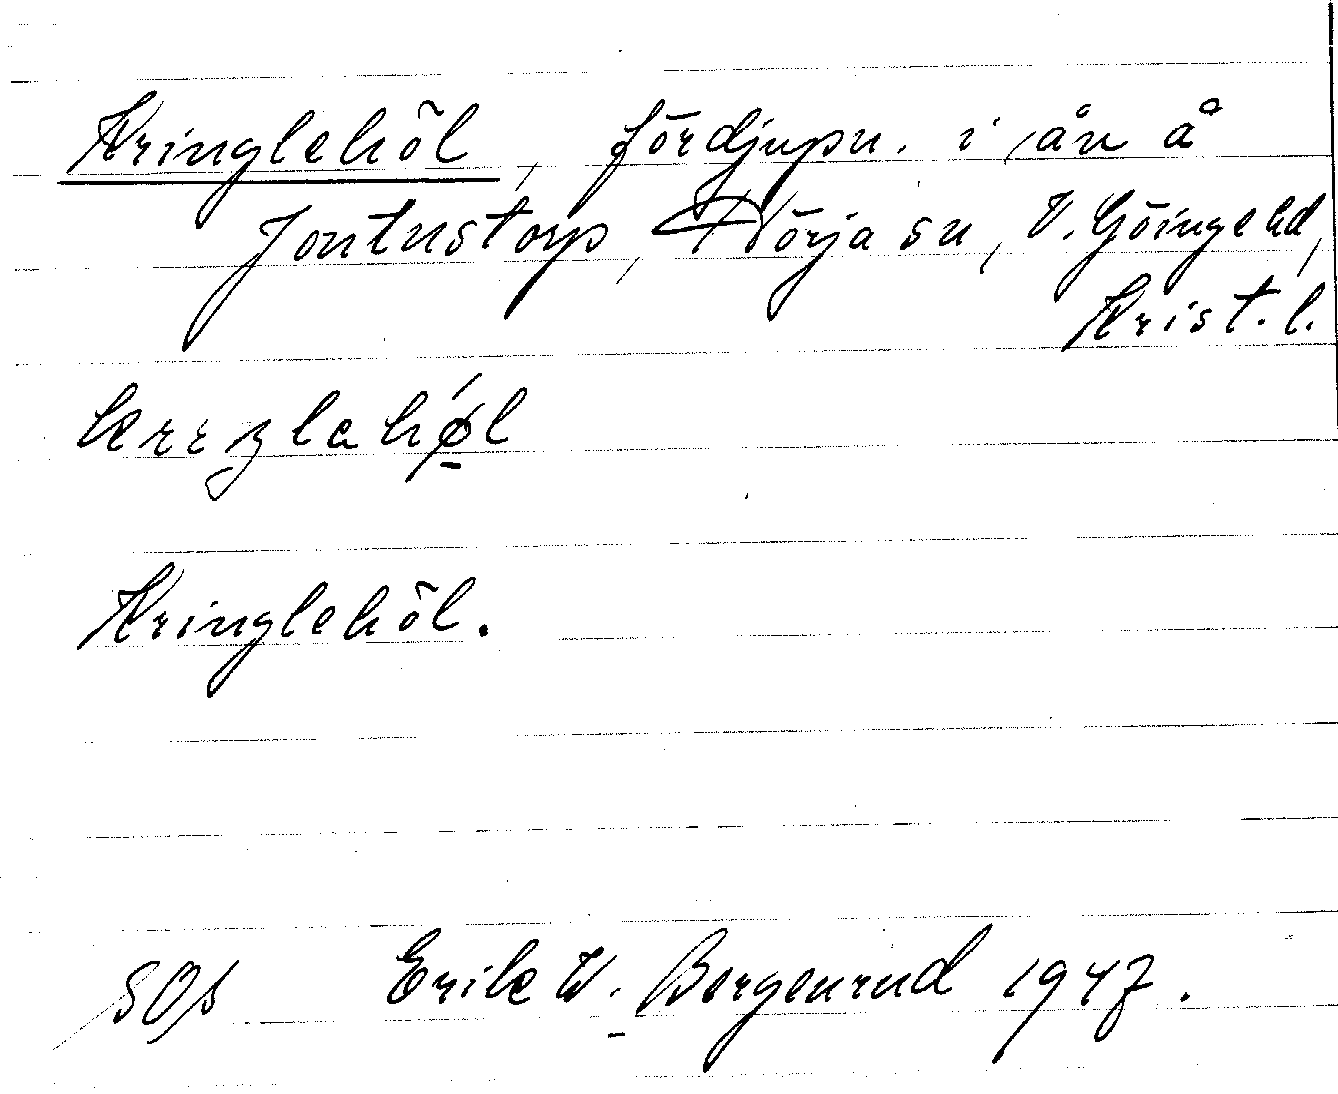 Kringlehöl, fördjupn. i ån å
Jontustorp, Nörja sn, V. Göingehd,
Krist. l.
Kringlehöl.
SOS Erik W. Bergenrud 1947.